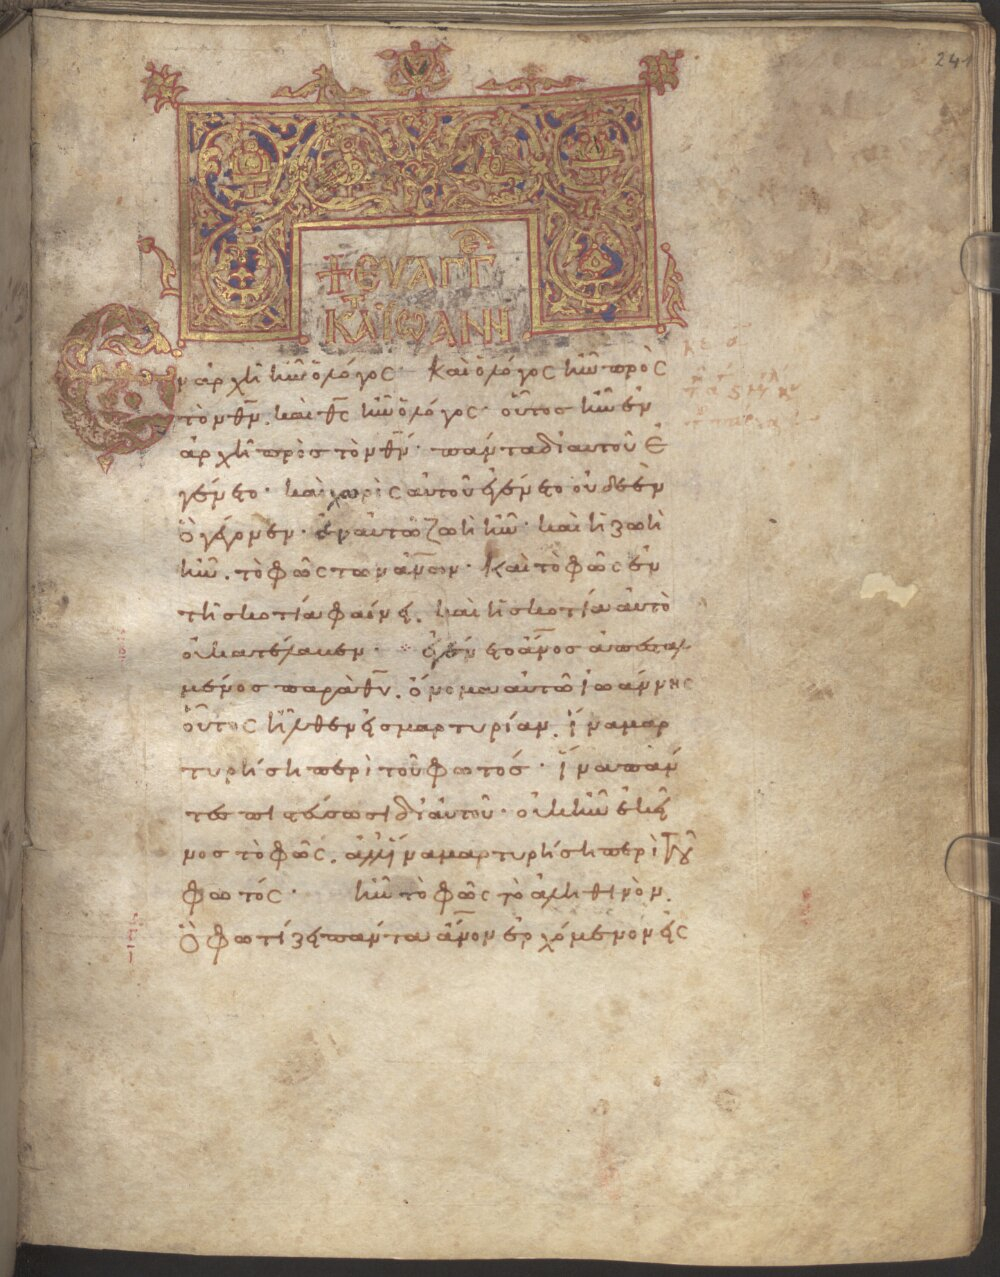 241
+ ΕΥΑΓΓ
ΚΑΤ ΙΩΑΝΝ
Εν ἀρχῆ ἦν ὁ λόγος· Καὶ ὁ λόγος ἦν πρὸς
τὸν θν̄. καὶ θς̄ ἦν ὁ λόγος· οὗτος ἦν ἐν
ἀρχῆ πρὸς τὸν θν̄· πάντα δι αυτοῦ ἐ
γένετο· καὶ χωρὶς αὐτοῦ ἐγένετο οὐδὲ ἐν
ὃ γέγονεν· ἐν αὐτῶ ζωὴ ἦν· καὶ ἡ ζωὴ
ἦν. τὸ φῶς τῶν ἀνω̄ν· Καὶ τὸ φῶς ἐν
τῆ σκοτία φαίνει. καὶ ἡ σκοτία αὐτὸ
οὐ κατέλαβεν· ἐγένετο ἀνο̄ς ἀπεσταλ
μένος παρὰ θῡ. ὄνομα αὐτῶ ἰωάννης
οὗτος ἦλθεν εἰς μαρτυρίαν. ἵνα μαρ
τυρήση περὶ τοῦ φωτός· ἵνα πάν
τες πιστεύσωσι δι αὐτοῦ· οὐκ ἦν ἐκεῖ
νος τὸ φῶς. ἀλλ ἵνα μαρτυρήση περὶ τοῦ
φωτός· ἦν τὸ φῶς τὸ ἀληθινὸν.
ὃ φωτίζει πάντα ἄνο̄ν ἐρχόμενον εἰς